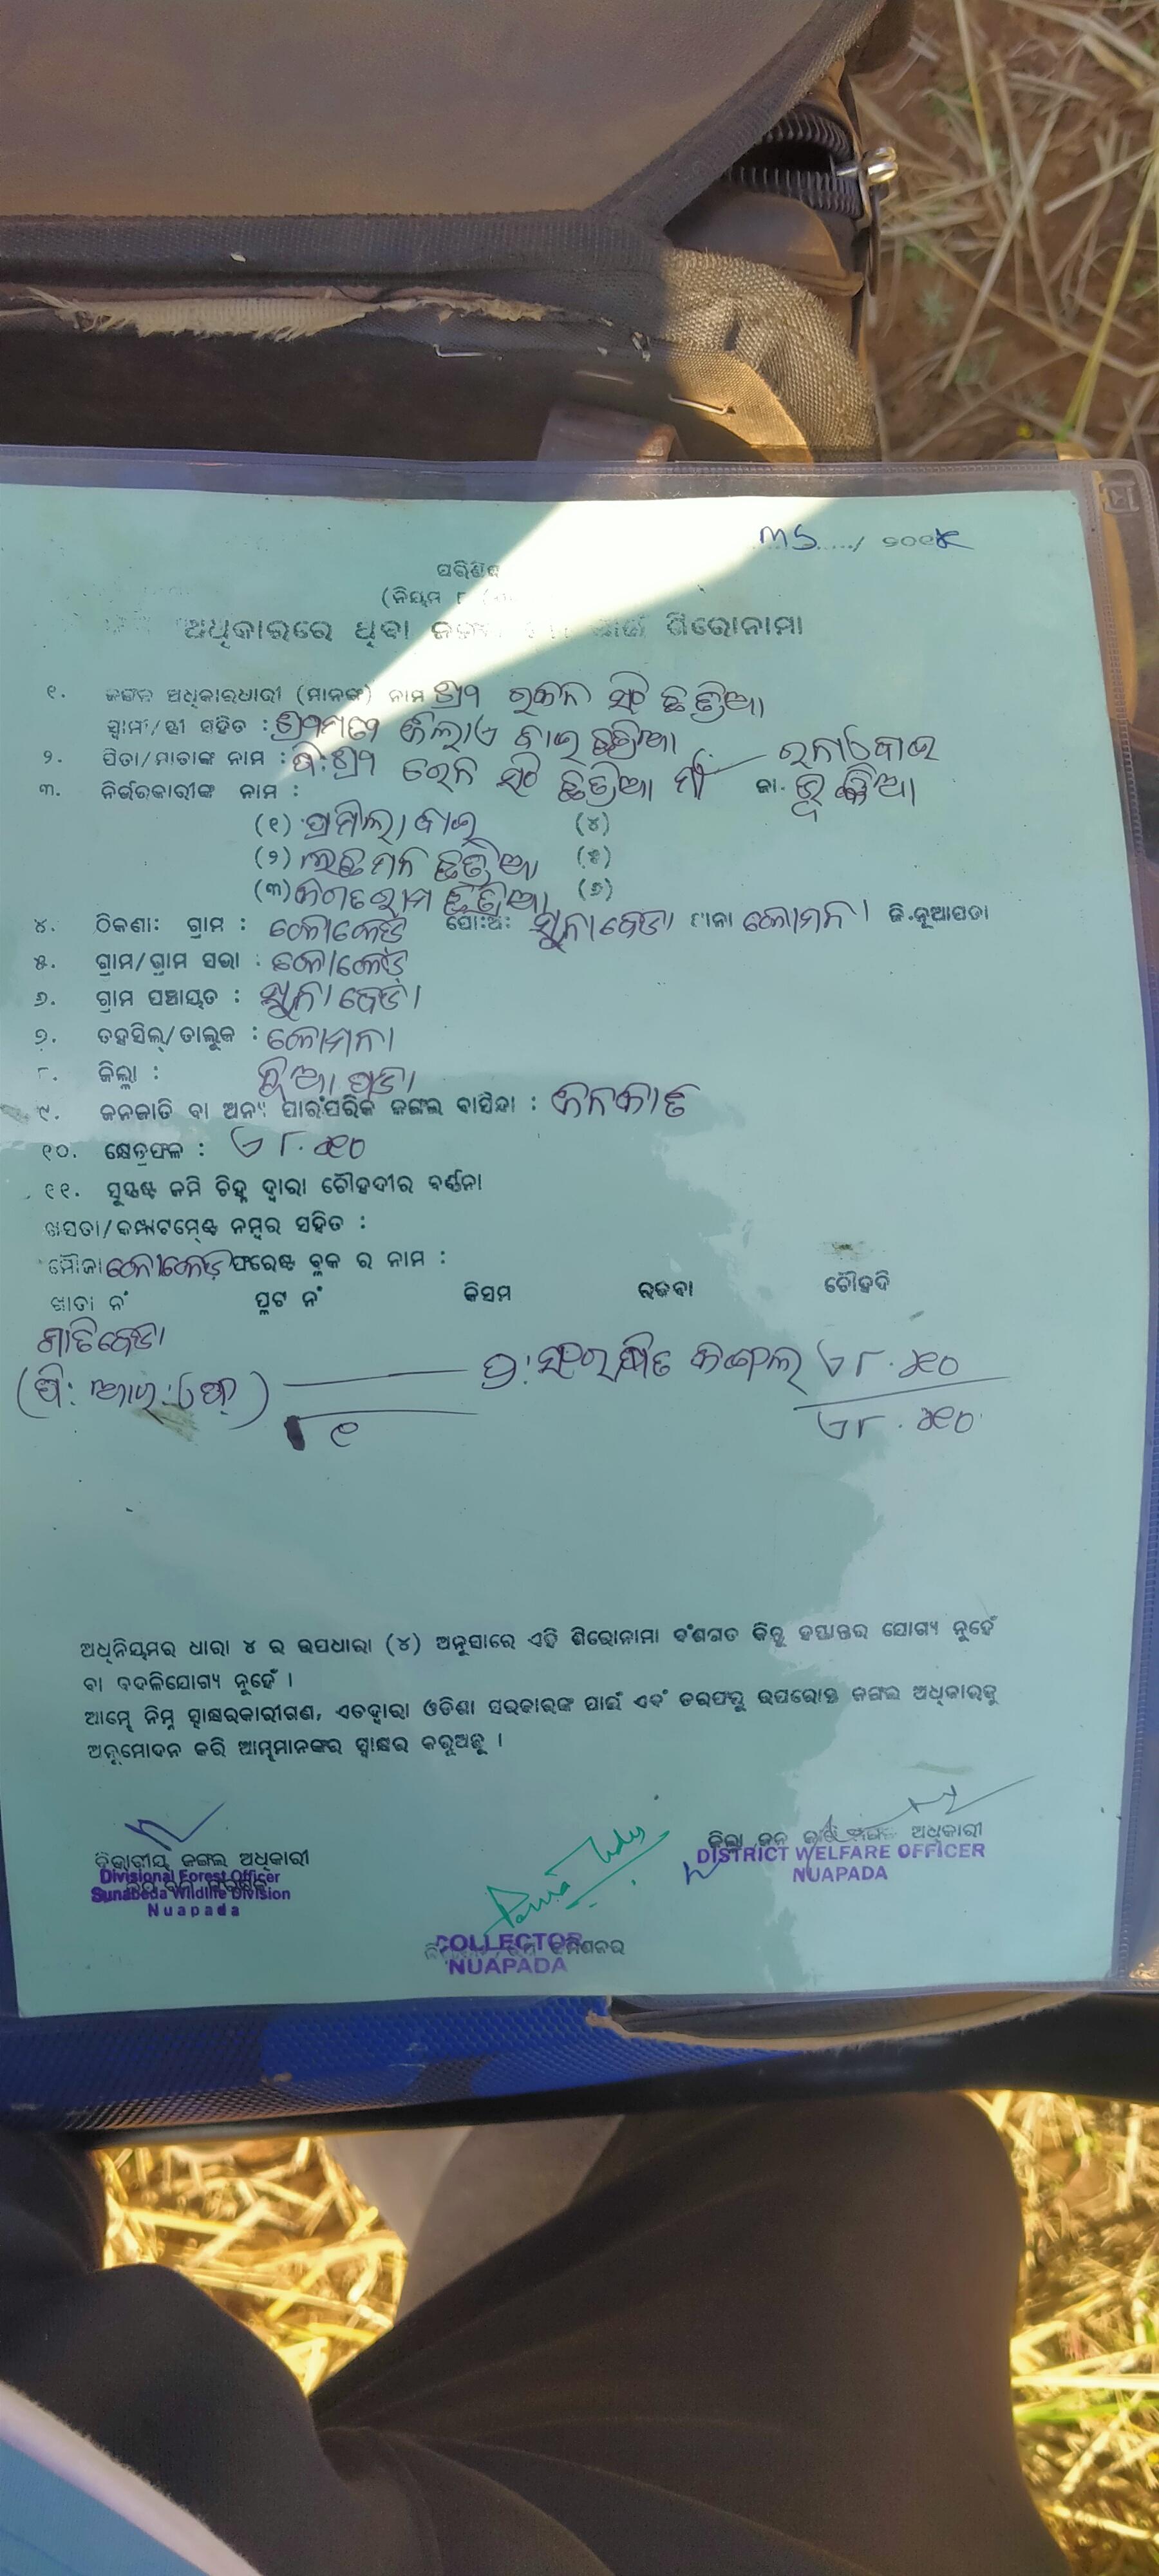 ୩୬...../ ୨୦୧୫
ପରିଶିଷ୍ଟ
(ନିୟମ ୮
ଅଧିକାରରେ ଥିବା ପାଇଁ ଶିରୋନାମା
୧. ଜଙ୍ଗଲ ଅଧିକାରଧାରୀ (ମାନଙ୍କ) ନାମ ଶ୍ରୀ ସିଂ ଛତ୍ରିଆ
ସ୍ୱାମୀ/ସ୍ତ୍ରୀ ସହିତ : ଶ୍ରୀମତୀ ବାଇ ଛତ୍ରିଆ
୨. ପିତା/ମାତାଙ୍କ ନାମ : ପି: ଶ୍ରୀ ସିଂ ଛତ୍ରିଆ ମା
୩. ନିର୍ଭରକାରୀଙ୍କ ନାମ : ଜା. ଭୂଞ୍ଜିଆ
(୧) ପ୍ରମିଲା ବାଇ (୪)
(୨) ଲଛମନ ଛତ୍ରିଆ (୫)
(୩) ଛତ୍ରିଆ (୬)
୪. ଠିକଣା: ଗ୍ରାମ : ପୋ:ଅ: ସୁନାବେଡା ଥାନା କୋମନା ଜି.ନୂଆପଡା
୫. ଗ୍ରାମ/ଗ୍ରାମ ସଭା :
୬. ଗ୍ରାମ ପଞ୍ଚାୟତ : ସୁନାବେଡା
୭. ତହସିଲ୍/ତାଲୁକ : କୋମନା
୮. ଜିଲ୍ଲା : ନୂଆପଡା
୯. ଜନଜାତି ବା ଅନ୍ୟ ପାରଂପରିକ ଜଙ୍ଗଲ ବାସିନ୍ଦା : ଜନଜାତି
୧୦. କ୍ଷେତ୍ରଫଳ : ୬୮.୫୦
୧୧. ସୁସ୍ପଷ୍ଟ ଜମି ଚିହ୍ନ ଦ୍ୱାରା ଚୌହଦୀର ବର୍ଣ୍ଣନା
ଖସଡା/କମ୍ପାଟମେଣ୍ଟ ନମ୍ବର ସହିତ :
ମୌଜା ଫରେଷ୍ଟ ବ୍ଲକ ର ନାମ :
ଖାତା ନଂ ପ୍ଲଟ ନଂ କିସମ ରକବା ଚୌହଦି
ପ୍ର: ସଂରକ୍ଷିତ ଜଙ୍ଗଲ ୬୮.୫୦
(ପି: ଆର: ଏଫ୍)
୧ ୬୮.୫୦
ଅଧିନିୟମର ଧାରା ୪ ର ଉପଧାରା (୪) ଅନୁସାରେ ଏହି ଶିରୋନାମା ବଂଶଗତ କିନ୍ତୁ ହସ୍ତାନ୍ତର ଯୋଗ୍ୟ ନୁହେଁ
ବା ବଦଳିଯୋଗ୍ୟ ନୁହେଁ ।
ଆମ୍ଭେ ନିମ୍ନ ସ୍ୱାକ୍ଷରକାରୀଗଣ, ଏତଦ୍ୱାରା ଓଡିଶା ସରକାରଙ୍କ ପାଇଁ ଏବଂ ତରଫରୁ ଉପରୋକ୍ତ ଜଙ୍ଗଲ ଅଧିକାରକୁ
ଅନୁମୋଦନ କରି ଆମ୍ଭମାନଙ୍କର ସ୍ୱାକ୍ଷର କରୁଅଛୁ ।
ଜିଲ୍ଲା ଅଧିକାରୀ
DISTRICT WELFARE OFFICER
NUAPADA
ବିଭାଗୀୟ ଜଙ୍ଗଲ ଅଧିକାରୀ
Divisional Forest Officer
Sunabeda Wildlife Division
Nuapada
COLLECTOR
NUAPADA